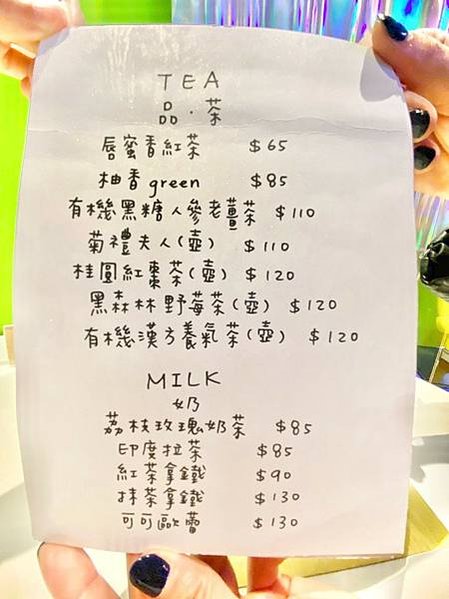 TEA
品·茶
唇蜜香紅茶 $65
柚香green $85
有機黑糖人參老薑茶 $110
菊禮夫人(壺) $110
桂圓紅棗茶(壺) $120
黑森林野莓茶(壺) $120
有機漢方養氣茶(壺) $120
MILK
奶
荔枝玫瑰奶茶 $85
印度拉茶 $85
紅茶拿鐵 $90
抹茶拿鐵 $130
可可歐蕾 $130